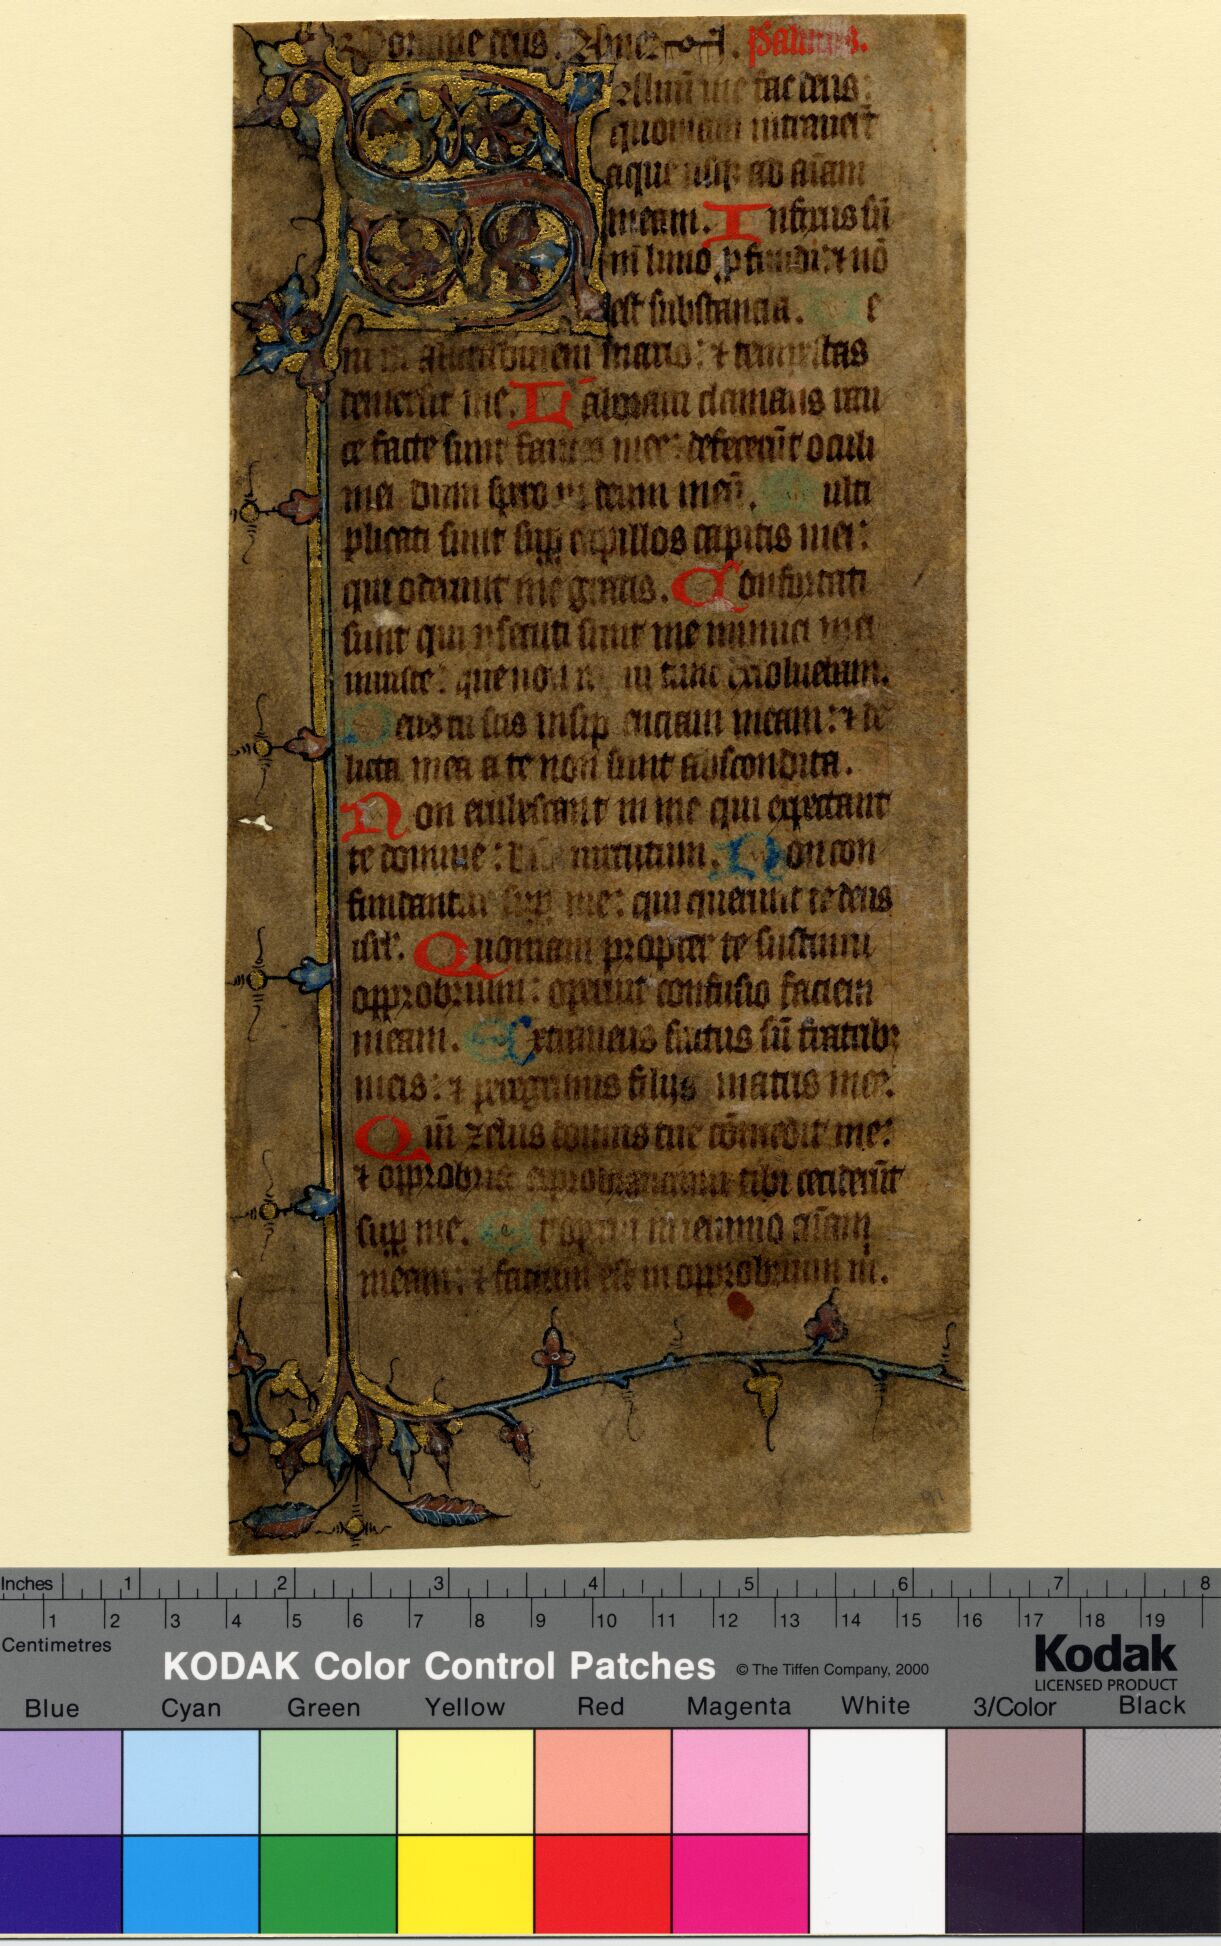 Domine deus. Psalmus.
Saluum me fac deus:
quoniam intrauerūt
aque usqꝫ ad aīam
meam. Infixus sū
in limo ꝓfundi: ⁊ nō
est substancia. Ve
ni in altitudinem maris: ⁊ tempestas
demersit me. Laboraui clamans rau
ce facte sunt fauces mee: defecerūt oculi
mei dum spero in deum meū. Multi
plicati sunt suꝑ capillos capitis mei:
qui oderunt me gratis. Confortati
sunt qui ꝑsecuti sunt me inimici mei
iniuste: que non rapui tunc exsoluebam.
Deus tu scis insipienciam meam: ⁊ de
licta mea a te non sunt abscondita.
Non erubescant in me qui expectant
te domine: uirtutum. Non con
fundantur suꝑ me: qui querunt te deus
isrl'. Quoniam propter te sustinui
opprobrium: operuit confusio faciem
meam. Extraneus factus sū fratribꝫ
meis: ⁊ peregrinus filijs matris mee.
Qm̄ zelus domus tue cōmedit me:
⁊ opprobria exprobrancium tibi ceciderūt
suꝑ me. Et operui in ieiunio aīam
meam: ⁊ factum est in opprobrium m̄.
Inches 1 2 3 4 5 6 7 8
1 2 3 4 5 6 7 8 9 10 11 12 13 14 15 16 17 18 19
Centimetres
KODAK Color Control Patches © The Tiffen Company, 2000 Kodak
LICENSED PRODUCT
Blue Cyan Green Yellow Red Magenta White 3/Color Black